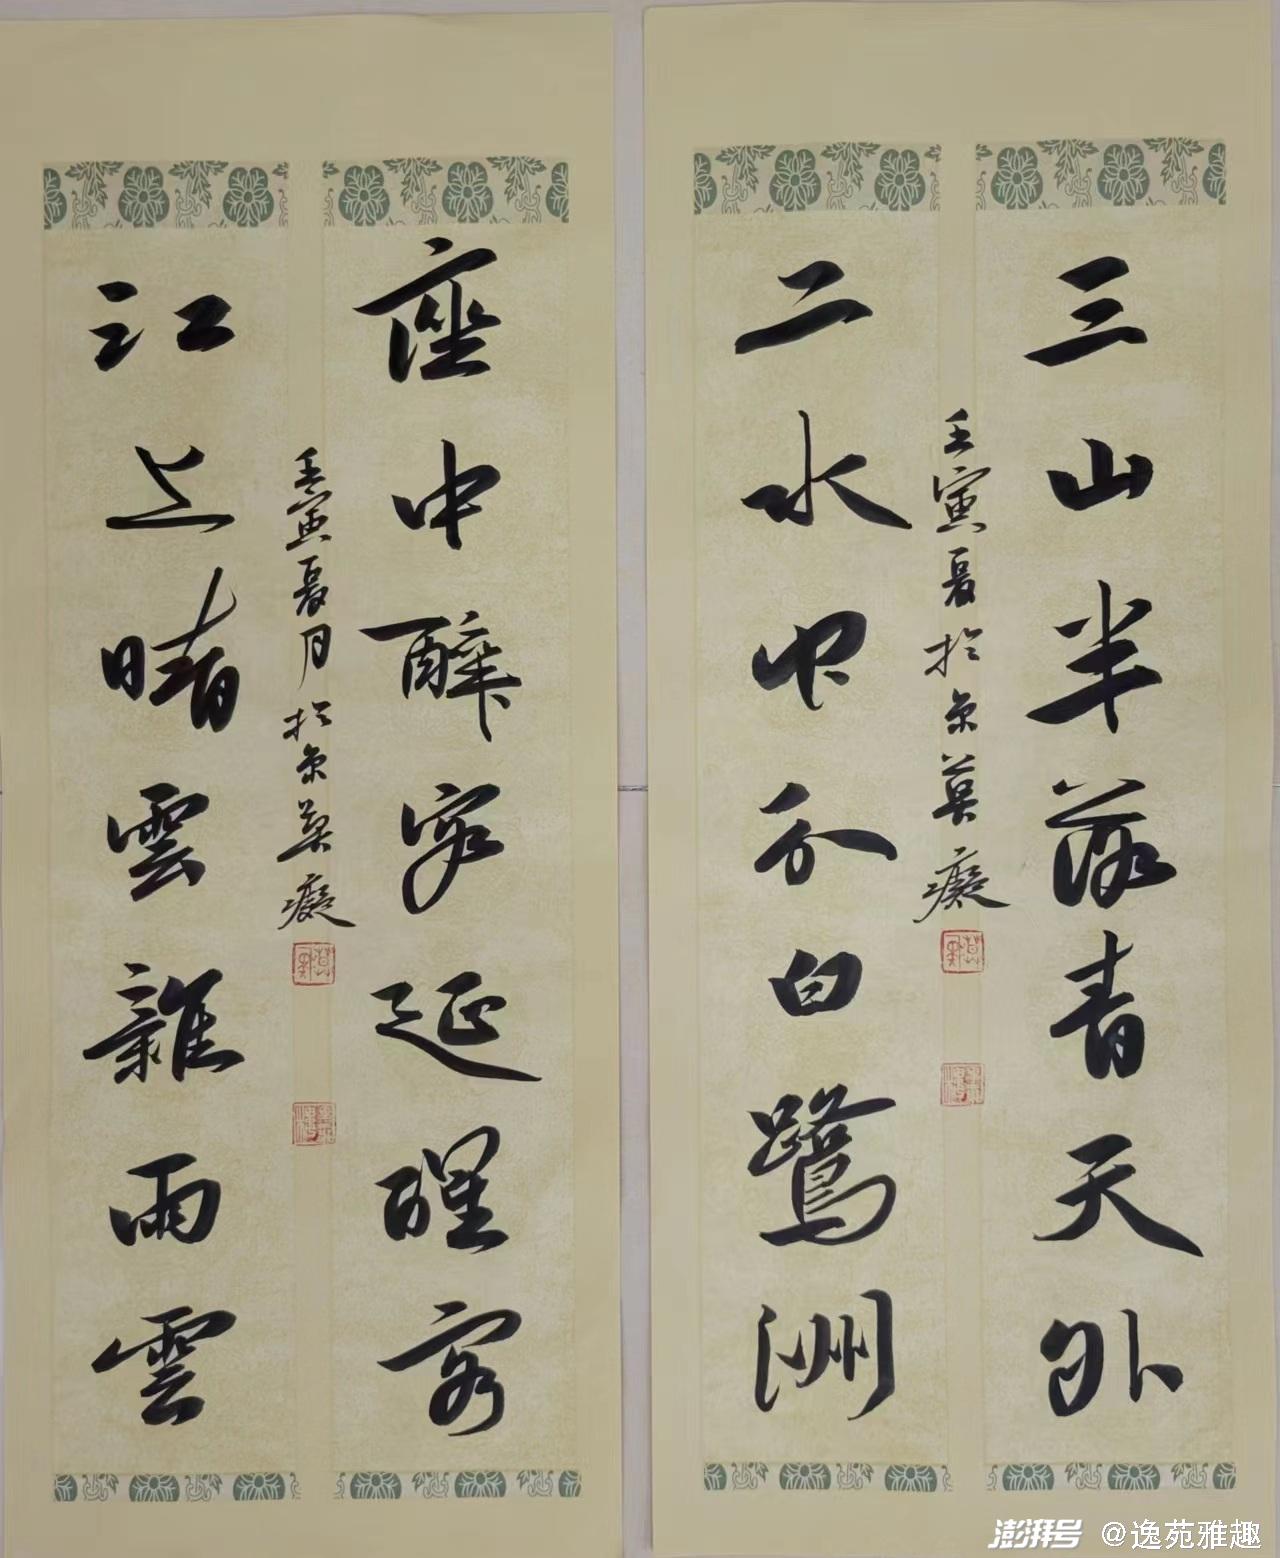 三山半落青天外
壬寅夏於京莫癡
二水中分白鷺洲
座中醉客延醒客
壬寅夏月於京莫癡
江上晴雲雜雨雲
澎湃号 @逸苑雅趣